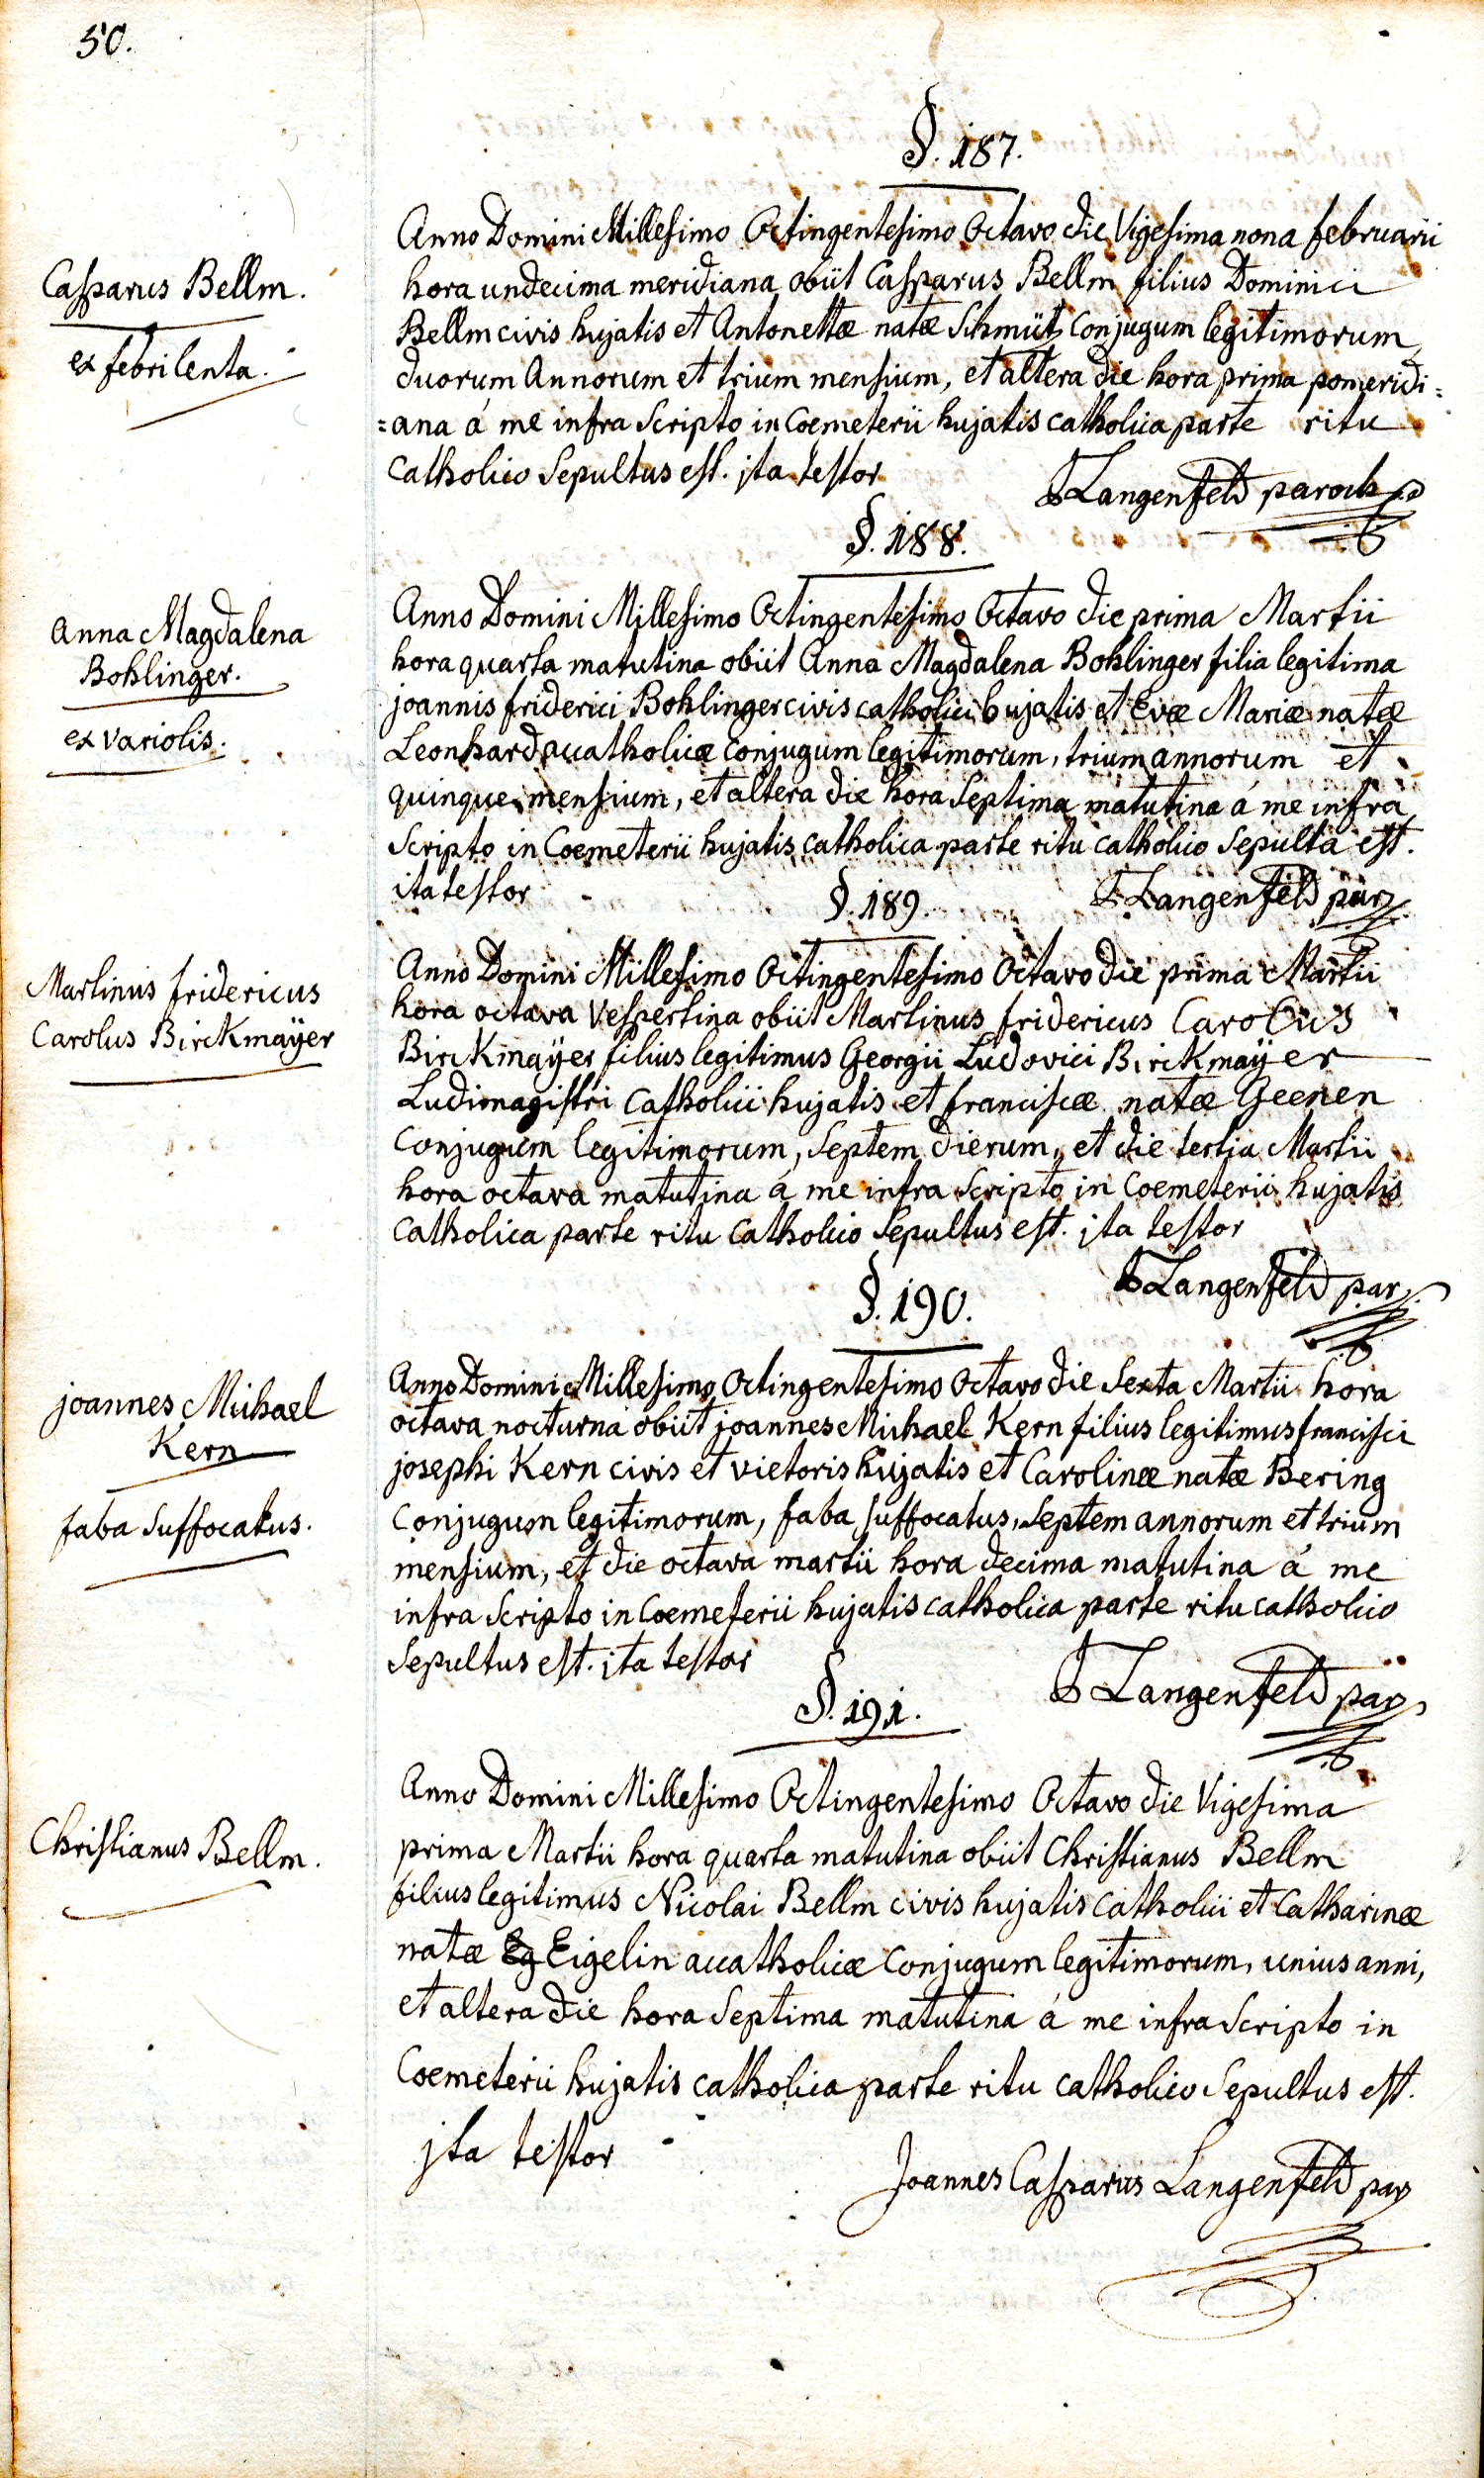 50.
§. 187.
Casparus Bellm.
ex febri lenta.
Anno Domini Millesimo Octingentesimo Octavo die Vigesima nona februarii
hora undecima meridiana obiit Casparus Bellm filius Dominici
Bellm civis hujatis et Antonettæ natæ Schmüt conjugum legitimorum,
duorum Annorum et trium mensium, et altera die hora prima pomeridi=
=ana á me infra Scripto in Coemeterii hujatis catholica parte ritu
Catholico Sepultus est. jta testor
J Langenfeld paroch
§. 188.
Anna Magdalena
Bohlinger.
ex variolis.
Anno Domini Millesimo Octingentesimo Octavo die prima Martii
hora quarta matutina obiit Anna Magdalena Bohlinger filia legitima
joannis friderici Bohlinger civis catholici hujatis et Evæ Mariæ natæ
Leonhard accatholicæ conjugum legitimorum, trium annorum et
quinque mensium, et altera die hora Septima matutina á me infra
Scripto in Coemeterii hujatis catholica parte ritu catholico Sepulta est.
ita testor
J Langenfeld par
§. 189.
Martinus fridericus
Carolus Birckmaÿer
Anno Domini Millesimo Octingentesimo Octavo die prima Martii
hora octava Vespertina obiit Martinus fridericus Carolus
Birckmaÿer filius legitimus Georgii Ludovici Birckmaÿer
Ludimagistri Catholici hujatis et franciscæ natæ Geenen
Conjugum legitimorum, Septem dierum, et die tertia Martii
hora octava matutina á me infra Scripto in Coemeterii hujatis
Catholica parte ritu Catholico Sepultus est. jta testor
J Langenfeld par
§. 190.
joannes Michael
Kern
faba Suffocatus.
Anno Domini Millesimo Octingentesimo Octavo die Sexta Martii hora
octava nocturna obiit joannes Michael Kern filius legitimus francisci
josephi Kern civis et vietoris hujatis et Carolinæ natæ Bering
Conjugum legitimorum, faba suffocatus, Septem annorum et trium
mensium, et die octava martii hora decima matutina á me
infra Scripto in Coemeterii hujatis catholica parte ritu catholico
Sepultus est. jta testor
J Langenfeld par
§. 191.
Christianus Bellm.
Anno Domini Millesimo Octingentesimo Octavo die Vigesima
prima Martii hora quarta matutina obiit Christianus Bellm
filius legitimus Nicolai Bellm civis hujatis Catholici et Catharinæ
natæ Eg Eigelin accatholicæ Conjugum legitimorum, unius anni,
et altera die hora Septima matutina á me infra Scripto in
Coemeterii hujatis catholica parte ritu catholico Sepultus est.
jta testor
Joannes Casparus Langenfeld par